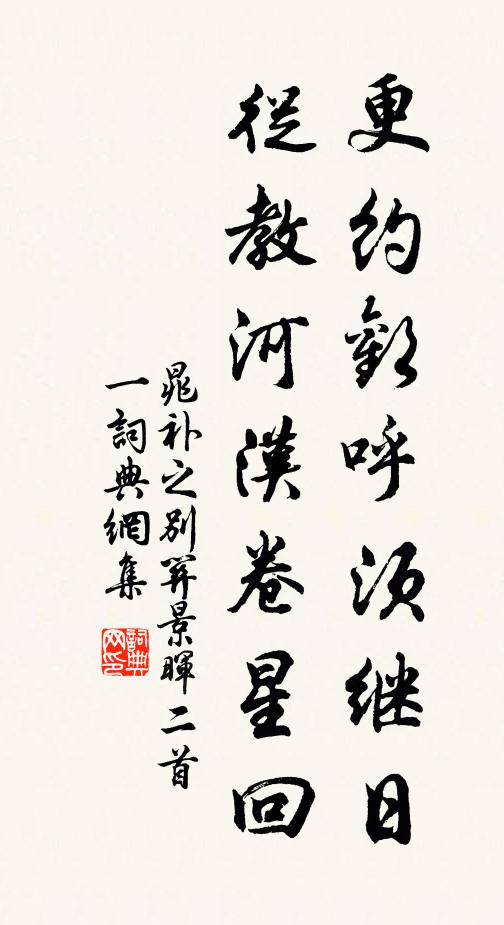 更约歡呼须继日
從教河漢卷星回
晁补之别筭景暉二首
一詞典網集
詞典网印